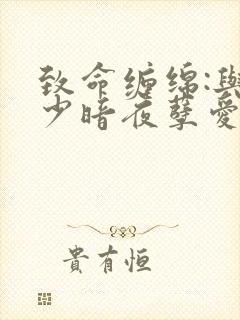 致命缠绵:與
少暗夜孽爱
貴有恒